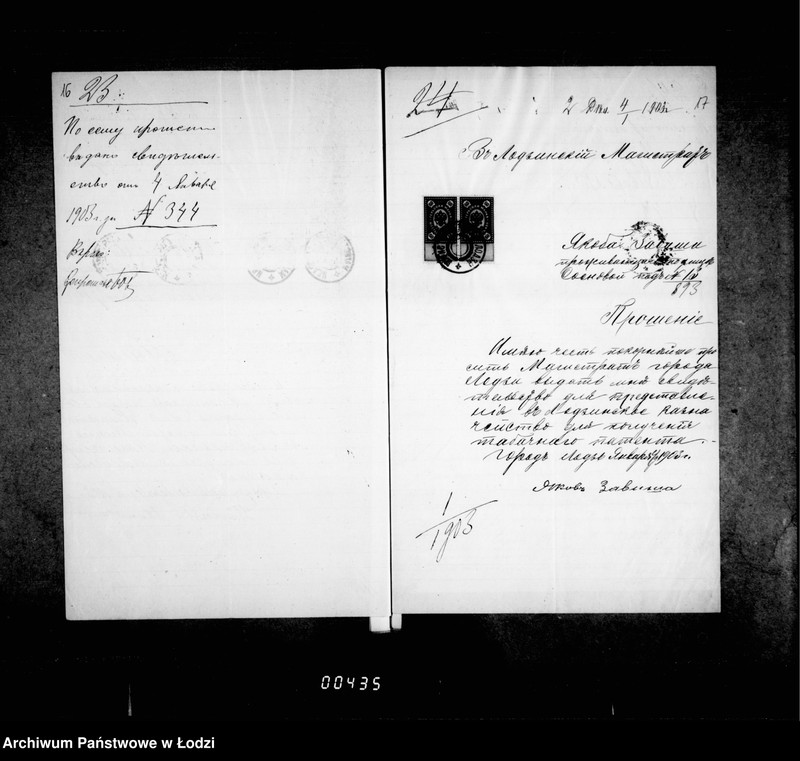 16 23
По сему прошен
выдано свидѣтель-
ство отъ 4 Января
1903 г. за
№ 344
24
4/1 1903 17
Въ Лодзинскій Магистратъ
Якова Завиши
Сосновой подъ №
893
Прошеніе
Имѣю честь покорнѣйше про
сить Магистратъ города
Лодзи выдать мнѣ свидѣ-
тельство для представле-
нія въ Лодзинское казна
чейство для полученія
табачнаго патента.
Городъ Лодзь Января 1903 г.
Яковъ Завиша
1/1903
00435
Archiwum Państwowe w Łodzi